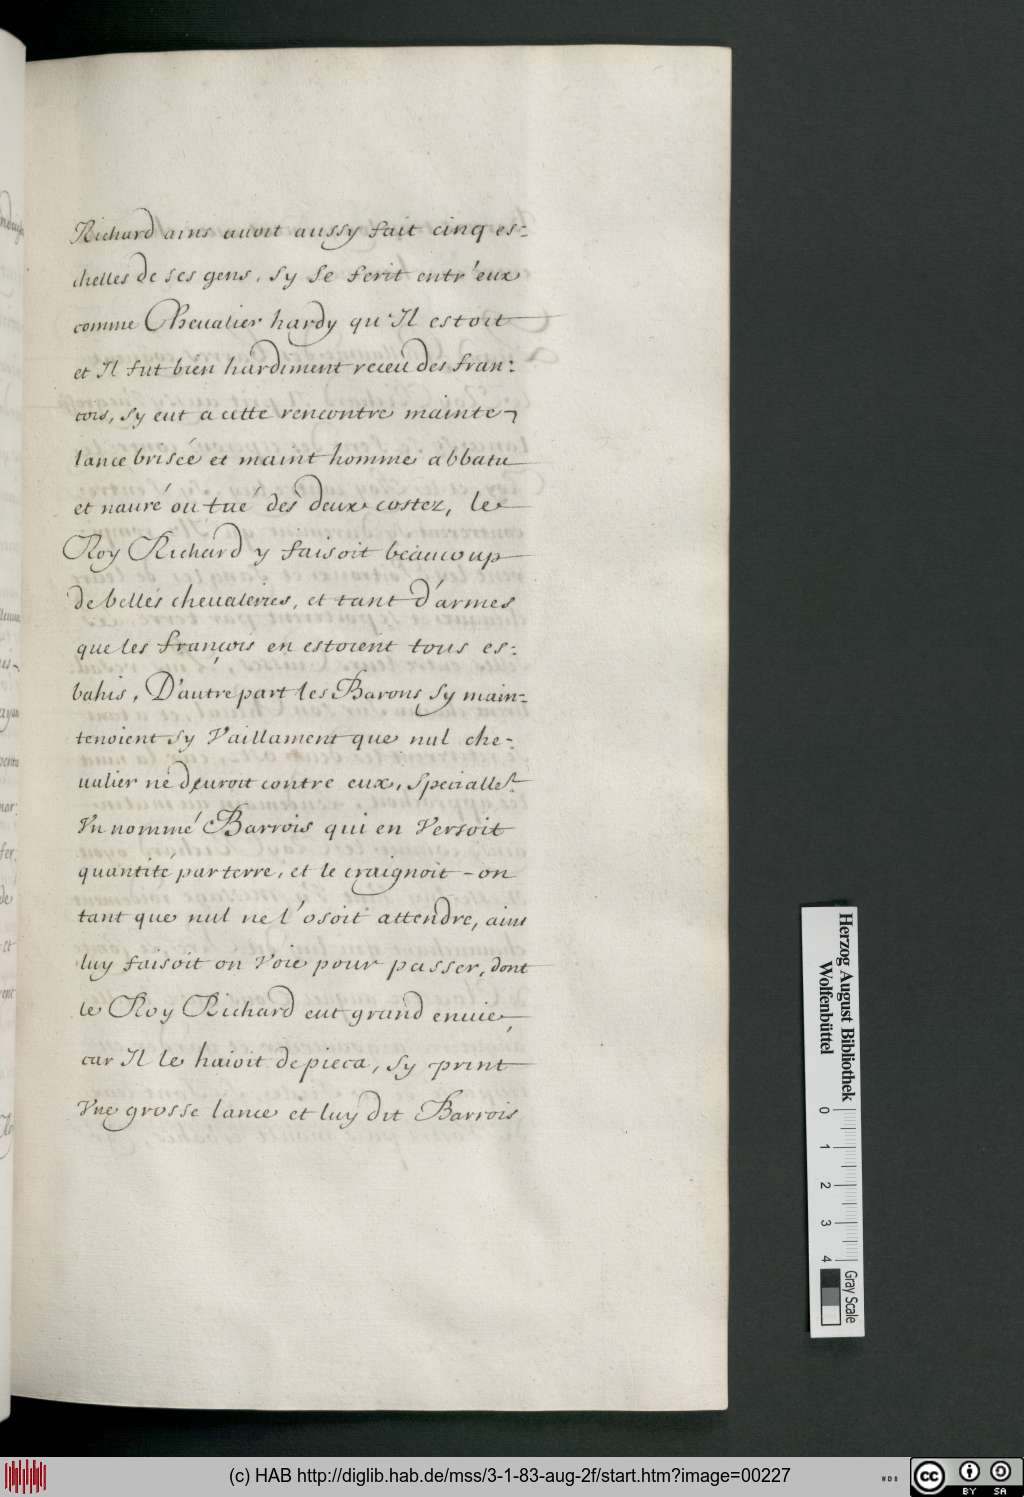 Richard ains auoit aussy fait cinq es-
chelles de ses gens, sy se ferit entr'eux
comme Cheualier hardy qu'Il estoit
et Il fut bien hardiment receu des fran:
cois, sy eut a cette rencontre mainte
lance brisée et maint homme abbatu
et nauré ou tué des deux costez, le
Roy Richard y faisoit beaucoup
de belles cheualeries, et tant d'armes
que les françois en estoient tous es:
bahis, D'autre part les Barons sy main-
tenoient sy Vaillament que nul che-
ualier ne deuroit contre eux, speciallet
Vn nommé Barrois qui en Versoit
quantité par terre, et le craignoit-on
tant que nul ne l'osoit attendre, ains
luy faisoit on Voie pour passer, dont
le Roy Richard eut grand enuie,
car Il le haioit de pieca, sy print
Vne grosse lance et luy dit Barrois
Herzog August Bibliothek
Wolfenbüttel
0 1 2 3 4
Gray Scale
(c) HAB http://diglib.hab.de/mss/3-1-83-aug-2f/start.htm?image=00227
cc BY SA